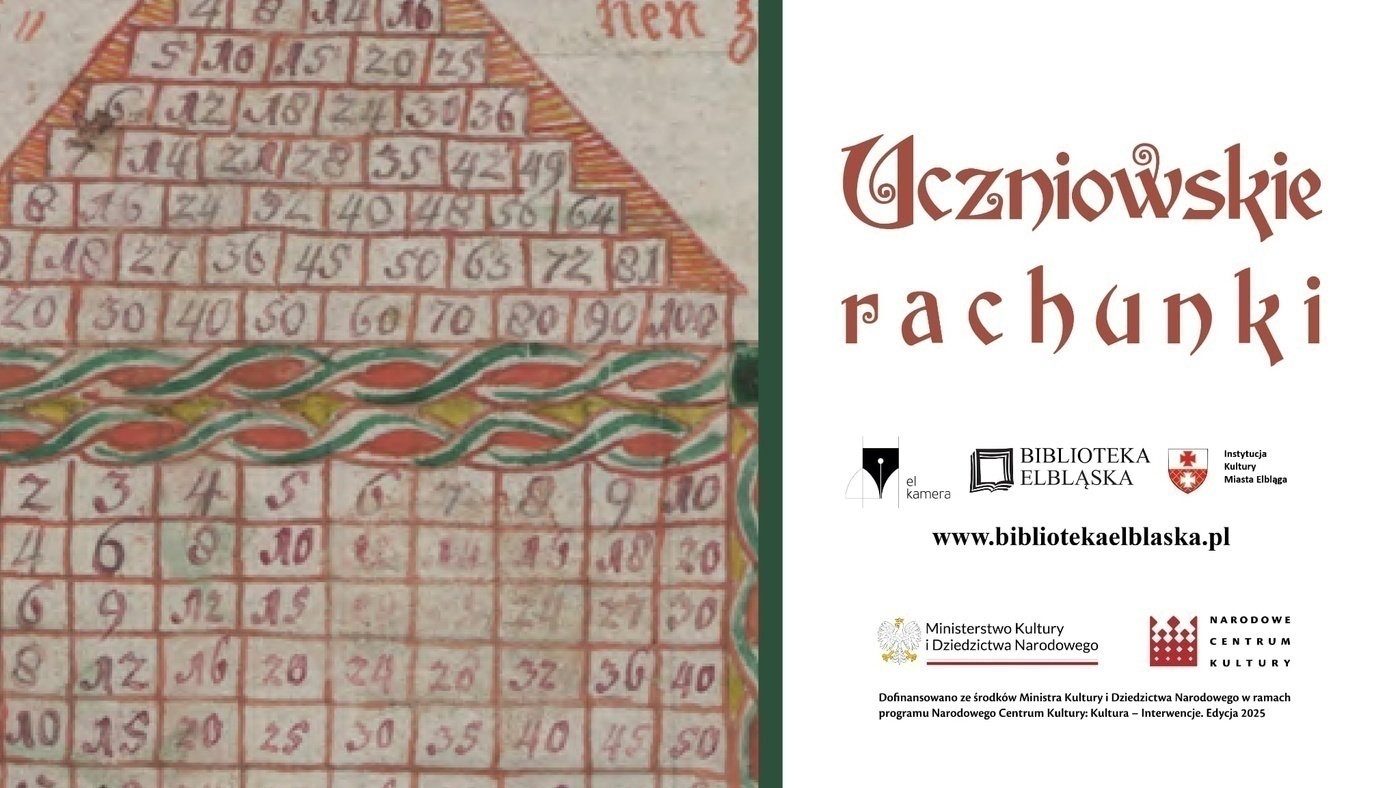 nen
4 8 16
5 10 15 20 25
6 12 18 24 30 36
7 14 21 28 35 42 49
8 16 24 32 40 48 56 64
18 27 36 45 50 63 72 81
20 30 40 50 60 70 80 90 100
2 3 4 5 6 7 8 9 10
4 6 8 10 12 14 16 18 20
6 9 12 15 24 27 30
8 12 16 20 24 28 32 36 40
10 15 20 25 30 35 40 45 50
Uczniowskie
rachunki
el
kamera
BIBLIOTEKA
ELBLĄSKA
Instytucja
Kultury
Miasta Elbląga
www.bibliotekaelblaska.pl
Ministerstwo Kultury
i Dziedzictwa Narodowego
NARODOWE
CENTRUM
KULTURY
Dofinansowano ze środków Ministra Kultury i Dziedzictwa Narodowego w ramach
programu Narodowego Centrum Kultury: Kultura – Interwencje. Edycja 2025